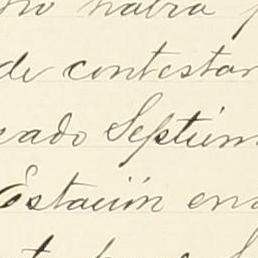 no habia
de contestar
sado Septiem
Estación en